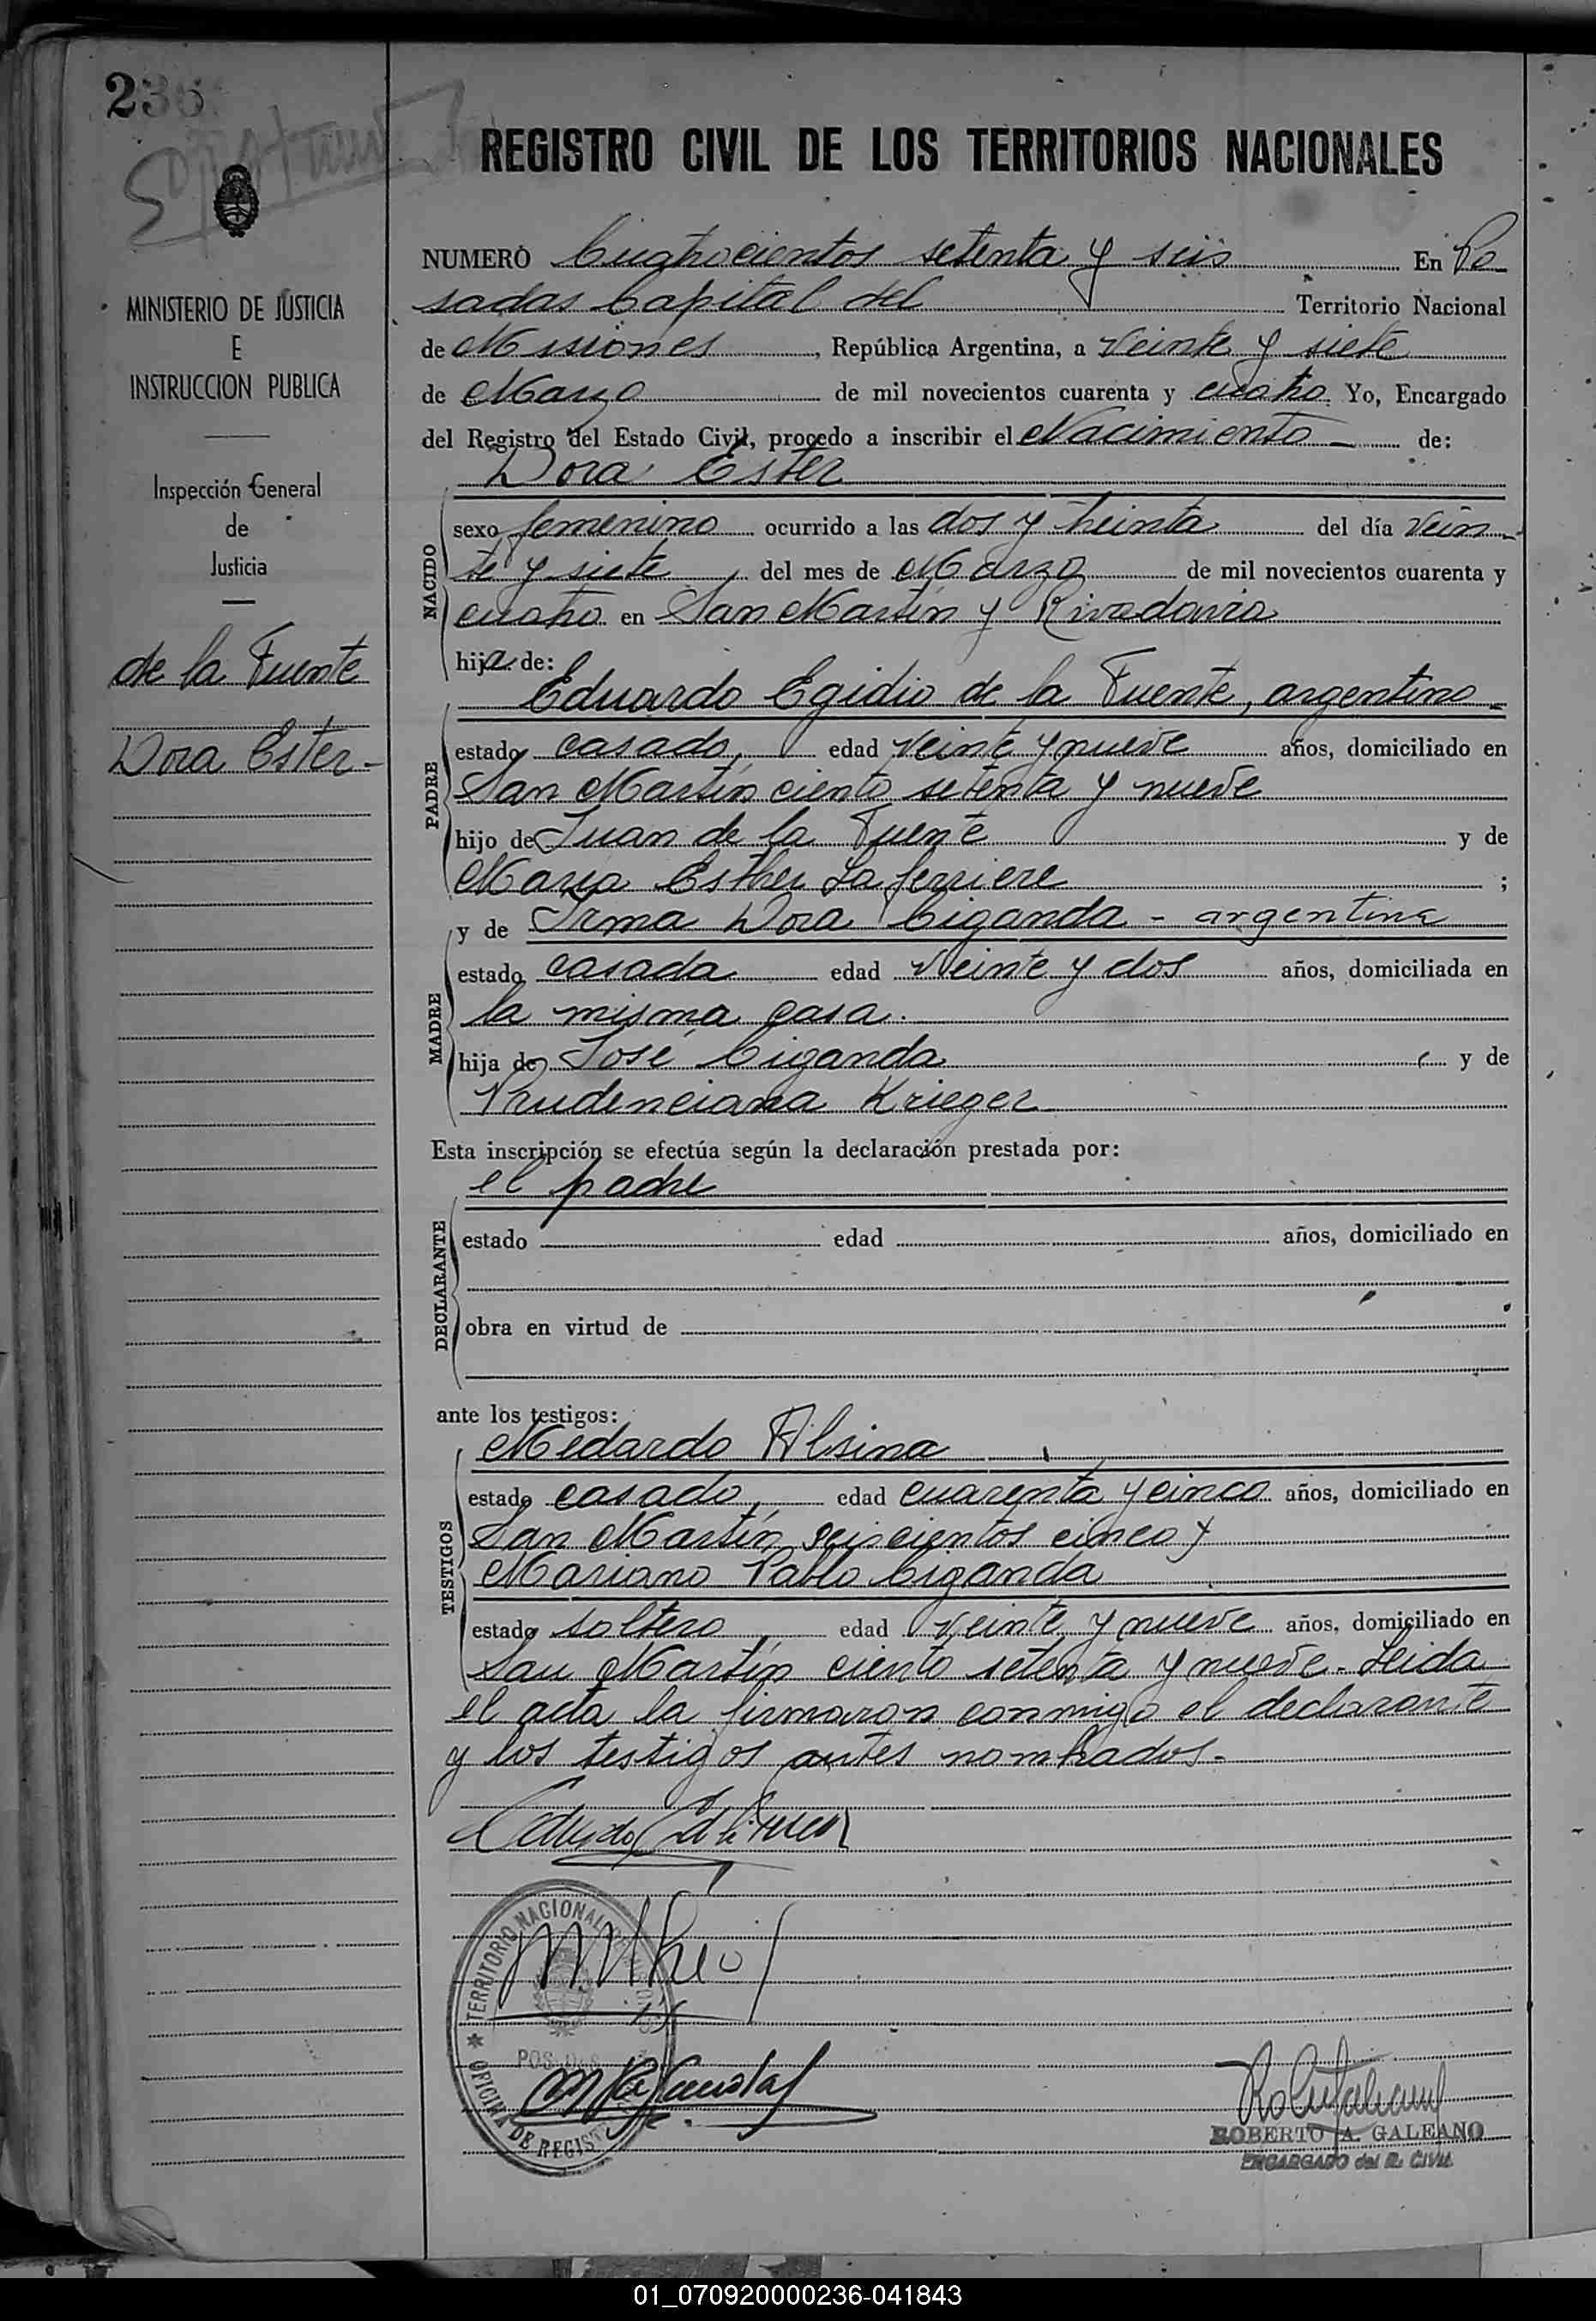 236
REGISTRO CIVIL DE LOS TERRITORIOS NACIONALES
MINISTERIO DE JUSTICIA
E
INSTRUCCION PUBLICA
Inspección General
de
Justicia
de la Fuente
Dora Ester-
NUMERO Cuatrocientos setenta y seis En Po
sadas Capital del Territorio Nacional
de Misiones, República Argentina, a veinte y siete
de Marzo de mil novecientos cuarenta y cuatro Yo, Encargado
del Registro del Estado Civil, procedo a inscribir el Nacimiento - de:
Dora Ester
NACIDO
sexo femenino ocurrido a las dos y treinta del día vein-
te y siete del mes de Marzo de mil novecientos cuarenta y
cuatro en San Martín y Rivadavia
hija de:
Eduardo Egidio de la Fuente, argentino-
PADRE
estado casado, edad veinte y nueve años, domiciliado en
San Martín ciento setenta y nueve
hijo de Juan de la Fuente y de
María Esther Laferriere ;
y de Irma Dora Ciganda - argentina
MADRE
estado casada edad veinte y dos años, domiciliada en
la misma casa.
hija de José Ciganda y de
Prudenciana Krieger
Esta inscripción se efectúa según la declaración prestada por:
el padre
DECLARANTE
estado edad años, domiciliado en
obra en virtud de
ante los testigos:
Medardo Alsina
TESTIGOS
estado casado, edad cuarenta y cinco años, domiciliado en
San Martín seiscientos cinco y
Mariano Pablo Ciganda
estado soltero, edad veinte y nueve años, domiciliado en
San Martín ciento setenta y nueve. Leida
el acta la firmaron conmigo el declarante
y los testigos antes nombrados.-
TERRITORIO NACIONAL DE MISIONES
POSADAS
OFICINA DE REGISTRO
ROBERTO A. GALEANO
ENCARGADO del R. CIVIL
01_070920000236-041843